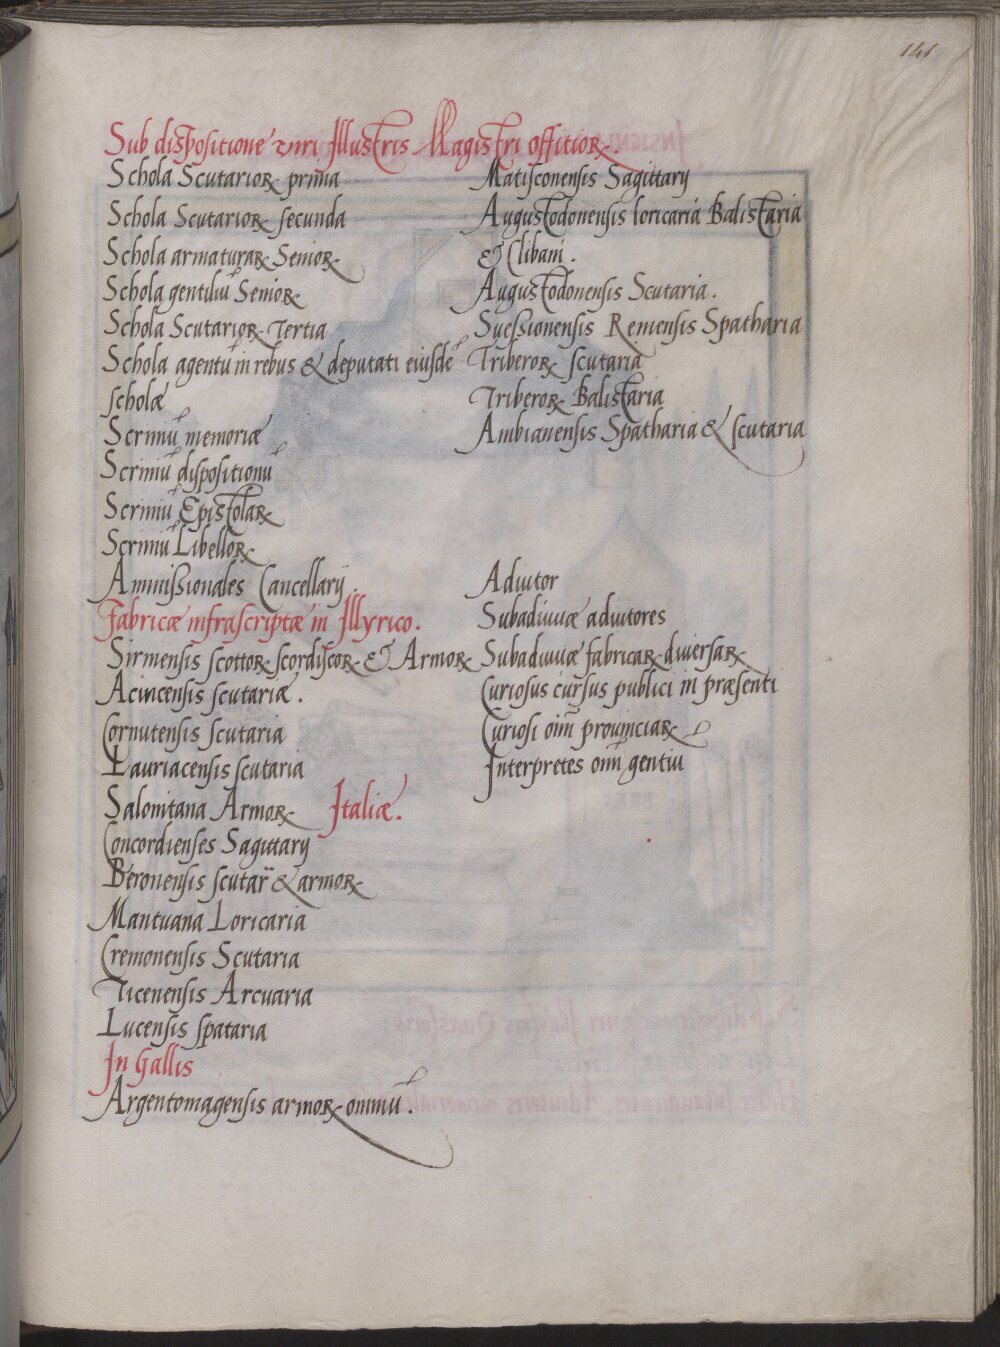 141
Sub dispositione viri Illustris Magistri offitioꝝ.
Schola Scutarioꝝ prima
Schola Scutarioꝝ secunda
Schola armaturaꝝ Senioꝝ
Schola gentiliũ Senioꝝ
Schola Scutarioꝝ Tertia
Schola agentũ in rebus & deputati eiusdẽ
scholæ
Scriniũ memoriæ
Scriniũ dispositionũ
Scriniũ Epistolaꝝ
Scriniũ Libelloꝝ
Amnißionales Cancellarij.
Fabricæ infrascriptæ in Illyrico.
Sirmensis scottoꝝ scordiscoꝝ & Armoꝝ
Acincensis scutariæ.
Cornutensis scutaria
Lauriacensis scutaria
Salonitana Armoꝝ Italiæ.
Concordienses Sagittarij
Beronensis scutar̃ & armoꝝ
Mantuana Loricaria
Cremonensis Scutaria
Ticenensis Arcuaria
Lucensis spataria
In Gallis
Argentomagensis armoꝝ omniũ.
Matisconensis Sagittarij
Augustodonensis loricaria Balistaria
& Clibani.
Augustodonensis Scutaria.
Sueßionensis Remensis Spatharia
Triberoꝝ scutaria
Triberoꝝ Balistaria
Ambianensis Spatharia & scutaria
Adiutor
Subadiuuæ adiutores
Subadiuuæ fabricaꝝ diuersaꝝ
Curiosus cursus publici in præsenti
Curiosi oim̃ prouinciaꝝ
Interpretes om̃ gentiũ